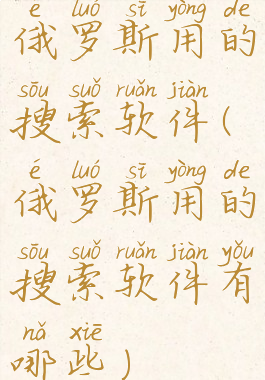 é luó sī yòng de
俄罗斯用的
sōu suǒ ruǎn jiàn
搜索软件(
é luó sī yòng de
俄罗斯用的
sōu suǒ ruǎn jiàn yǒu
搜索软件有
nǎ xiē
哪些)